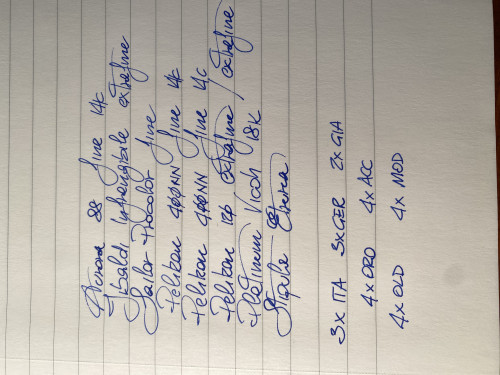 Aurora 88 fine 14k
Tibaldi Infrangibile extrafine
Sailor Procolor fine
Pelikan 400NN fine 14k
Pelikan 400NN fine 14c
Pelikan 120 extrafine / extrafine
Platinum 18k
Stipula Etruria
3x ITA 3xGER 2x GIA
4x ORO 4x ACC
4x OLD 4x MOD